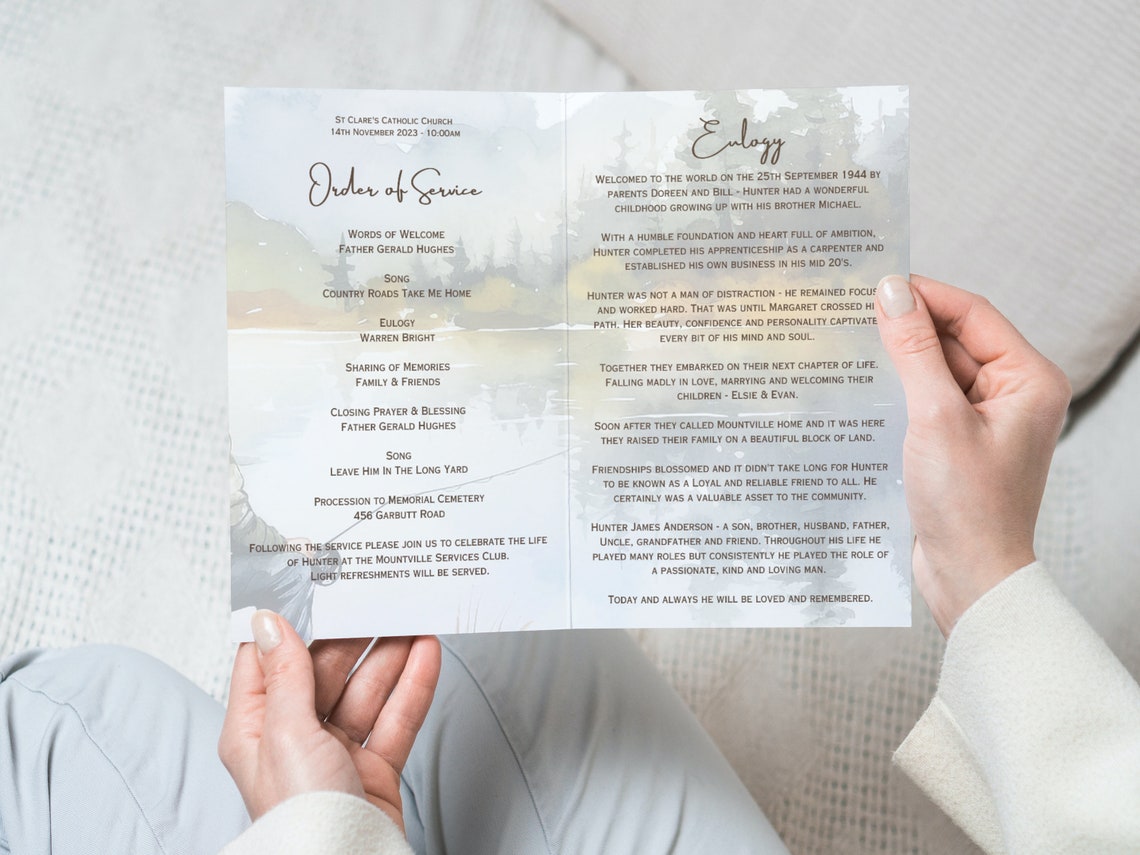 St Clare's Catholic Church
14th November 2023 - 10:00am
Order of Service
Words of Welcome
Father Gerald Hughes
Song
Country Roads Take Me Home
Eulogy
Warren Bright
Sharing of Memories
Family & Friends
Closing Prayer & Blessing
Father Gerald Hughes
Song
Leave Him In The Long Yard
Procession to Memorial Cemetery
456 Garbutt Road
Following the service please join us to celebrate the life
of Hunter at the Mountville Services Club.
Light refreshments will be served.
Eulogy
Welcomed to the world on the 25th September 1944 by
parents Doreen and Bill - Hunter had a wonderful
childhood growing up with his brother Michael.
With a humble foundation and heart full of ambition,
Hunter completed his apprenticeship as a carpenter and
established his own business in his mid 20's.
Hunter was not a man of distraction - he remained
and worked hard. That was until Margaret crossed
path. Her beauty, confidence and personality
every bit of his mind and soul.
Together they embarked on their next chapter of life.
Falling madly in love, marrying and welcoming their
children - Elsie & Evan.
Soon after they called Mountville home and it was here
they raised their family on a beautiful block of land.
Friendships blossomed and it didn't take long for Hunter
to be known as a Loyal and reliable friend to all. He
certainly was a valuable asset to the community.
Hunter James Anderson - a son, brother, husband, father,
Uncle, grandfather and friend. Throughout his life he
played many roles but consistently he played the role of
a passionate, kind and loving man.
Today and always he will be loved and remembered.